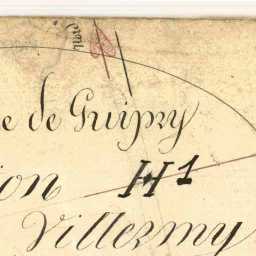 e de Guipry
ion H1
Villermy